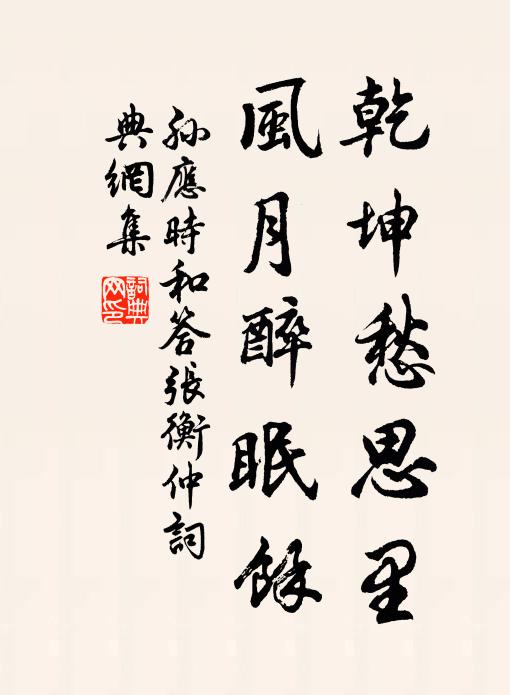 乾坤愁思里
風月醉眠餘
孫應時和答張衡仲詞
典網集
詞典
网印